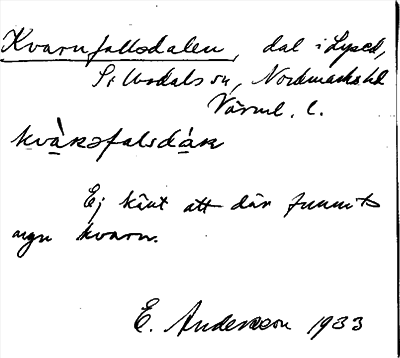 Kvarnfallsdalen, dal i Lysed,
Silbodals sn, Nordmarks hd
Värml. l.
kvàɳfalsdáɭn
Ej känt att där funnits
ngn kvarn.
E. Andersson 1933